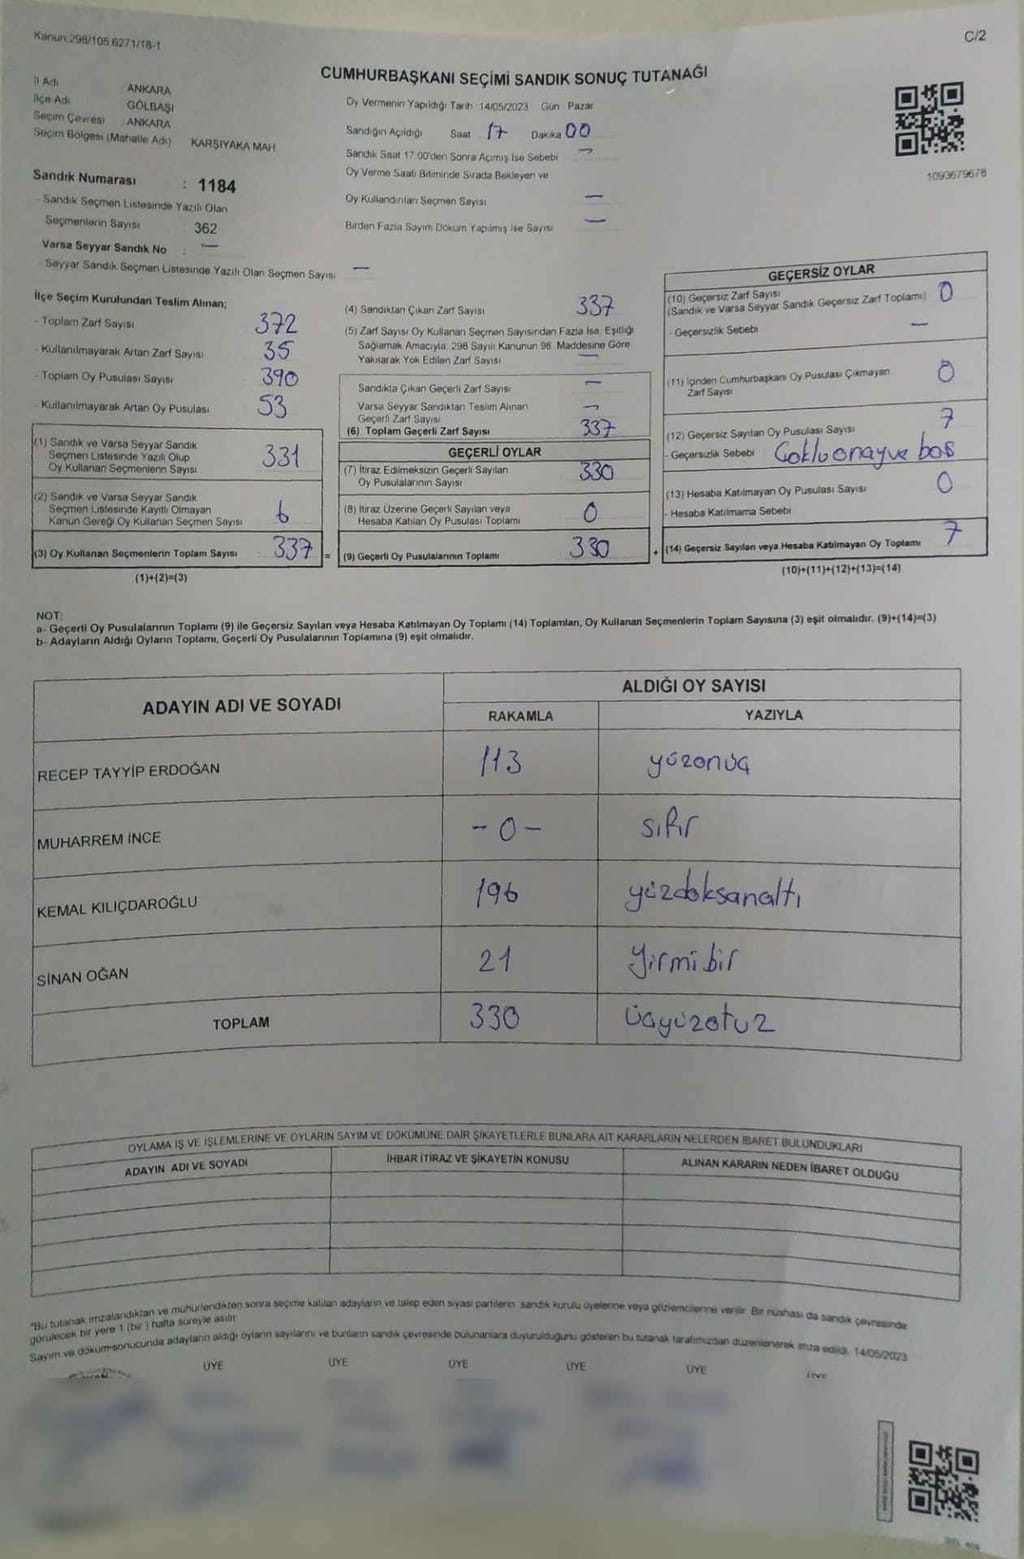 Kanun:298/105.6271/18-1
C/2
CUMHURBAŞKANI SEÇİMİ SANDIK SONUÇ TUTANAĞI
İl Adı ANKARA
İlçe Adı GÖLBAŞI
Seçim Çevresi ANKARA
Seçim Bölgesi (Mahalle Adı) KARŞIYAKA MAH.
Sandık Numarası : 1184
- Sandık Seçmen Listesinde Yazılı Olan
Seçmenlerin Sayısı 362
Varsa Seyyar Sandık No : —
- Seyyar Sandık Seçmen Listesinde Yazılı Olan Seçmen Sayısı —
Oy Vermenin Yapıldığı Tarih 14/05/2023 Gün Pazar
Sandığın Açıldığı Saat 17 Dakika 00
Sandık Saat 17:00'den Sonra Açılmış İse Sebebi —
Oy Verme Saati Bitiminde Sırada Bekleyen ve
Oy Kullandırılan Seçmen Sayısı —
Birden Fazla Sayım Döküm Yapılmış İse Sayısı —
1093679678
İlçe Seçim Kurulundan Teslim Alınan;
- Toplam Zarf Sayısı 372
- Kullanılmayarak Artan Zarf Sayısı 35
- Toplam Oy Pusulası Sayısı 390
- Kullanılmayarak Artan Oy Pusulası 53
(1) Sandık ve Varsa Seyyar Sandık
Seçmen Listesinde Yazılı Olup
Oy Kullanan Seçmenlerin Sayısı 331
(2) Sandık ve Varsa Seyyar Sandık
Seçmen Listesinde Kayıtlı Olmayan
Kanun Gereği Oy Kullanan Seçmen Sayısı 6
(3) Oy Kullanan Seçmenlerin Toplam Sayısı : 337 =
(1)+(2)=(3)
(4) Sandıktan Çıkan Zarf Sayısı 337
(5) Zarf Sayısı Oy Kullanan Seçmen Sayısından Fazla İse, Eşitliği
Sağlamak Amacıyla; 298 Sayılı Kanunun 98. Maddesine Göre
Yakılarak Yok Edilen Zarf Sayısı —
Sandıkta Çıkan Geçerli Zarf Sayısı —
Varsa Seyyar Sandıktan Teslim Alınan
Geçerli Zarf Sayısı —
(6) Toplam Geçerli Zarf Sayısı 337
GEÇERLİ OYLAR
(7) İtiraz Edilmeksizin Geçerli Sayılan
Oy Pusulalarının Sayısı 330
(8) İtiraz Üzerine Geçerli Sayılan veya
Hesaba Katılan Oy Pusulası Toplamı 0
(9) Geçerli Oy Pusulalarının Toplamı 330 +
GEÇERSİZ OYLAR
(10) Geçersiz Zarf Sayısı 0
(Sandık ve Varsa Seyyar Sandık Geçersiz Zarf Toplamı)
- Geçersizlik Sebebi —
(11) İçinden Cumhurbaşkanı Oy Pusulası Çıkmayan 0
Zarf Sayısı
(12) Geçersiz Sayılan Oy Pusulası Sayısı 7
- Geçersizlik Sebebi Çokluonay ve boş
(13) Hesaba Katılmayan Oy Pusulası Sayısı 0
- Hesaba Katılmama Sebebi
(14) Geçersiz Sayılan veya Hesaba Katılmayan Oy Toplamı 7
(10)+(11)+(12)+(13)=(14)
NOT:
a- Geçerli Oy Pusulalarının Toplamı (9) ile Geçersiz Sayılan veya Hesaba Katılmayan Oy Toplamı (14) Toplamları, Oy Kullanan Seçmenlerin Toplam Sayısına (3) eşit olmalıdır. (9)+(14)=(3)
b- Adayların Aldığı Oyların Toplamı, Geçerli Oy Pusulalarının Toplamına (9) eşit olmalıdır.
ADAYIN ADI VE SOYADI ALDIĞI OY SAYISI
RAKAMLA YAZIYLA
RECEP TAYYİP ERDOĞAN 113 yüzonüç
MUHARREM İNCE -0- sıfır
KEMAL KILIÇDAROĞLU 196 yüzdoksanaltı
SİNAN OĞAN 21 Yirmibir
TOPLAM 330 Üçyüzotuz
OYLAMA İŞ VE İŞLEMLERİNE VE OYLARIN SAYIM VE DÖKÜMÜNE DAİR ŞİKAYETLERLE BUNLARA AİT KARARLARIN NELERDEN İBARET BULUNDUKLARI
ADAYIN ADI VE SOYADI İHBAR İTİRAZ VE ŞİKAYETİN KONUSU ALINAN KARARIN NEDEN İBARET OLDUĞU
*Bu tutanak imzalandıktan ve mühürlendikten sonra seçime katılan adayların ve talep eden siyasi partilerin sandık kurulu üyelerine veya gözlemcilerine verilir. Bir nüshası da sandık çevresinde
görülecek bir yere 1 (bir) hafta süreyle asılır.
Sayım ve döküm sonucunda adayların aldığı oyların sayılarını ve bunların sandık çevresinde bulunanlara duyurulduğunu gösteren bu tutanak tarafımızdan düzenlenerek imza edildi. 14/05/2023
ÜYE ÜYE ÜYE ÜYE ÜYE ÜYE